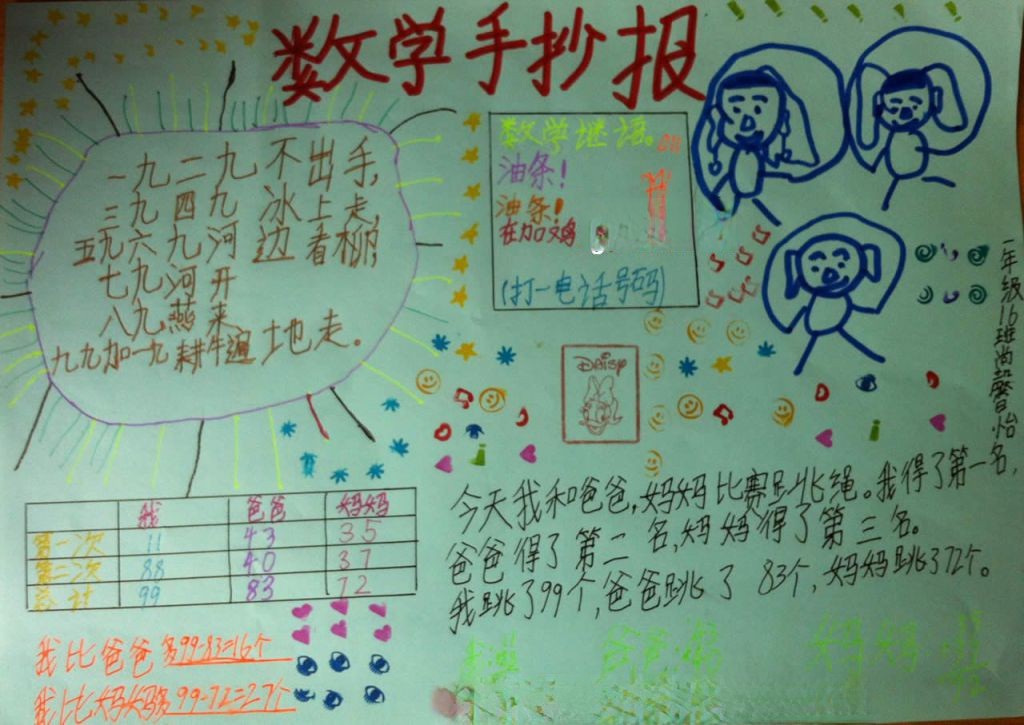 数学手抄报
一九二九不出手,
三九四九冰上走,
五九六九河边看柳,
七九河开
八九燕来
九九加一九耕牛遍地走。
数学谜语。
油条!
油条!
在加鸡
(打一电话号码)
DAISY
一年级16班尚馨怡
我 爸爸 妈妈
第一次 11 43 35
第二次 88 40 37
总计 99 83 72
我比爸爸多99-83=16个
我比妈妈多99-72=27个
今天我和爸爸,妈妈比赛跳绳。我得了第一名,
爸爸得了第二名,妈妈得了第三名。
我跳了99个,爸爸跳了83个,妈妈跳了72个。
爸爸 妈妈